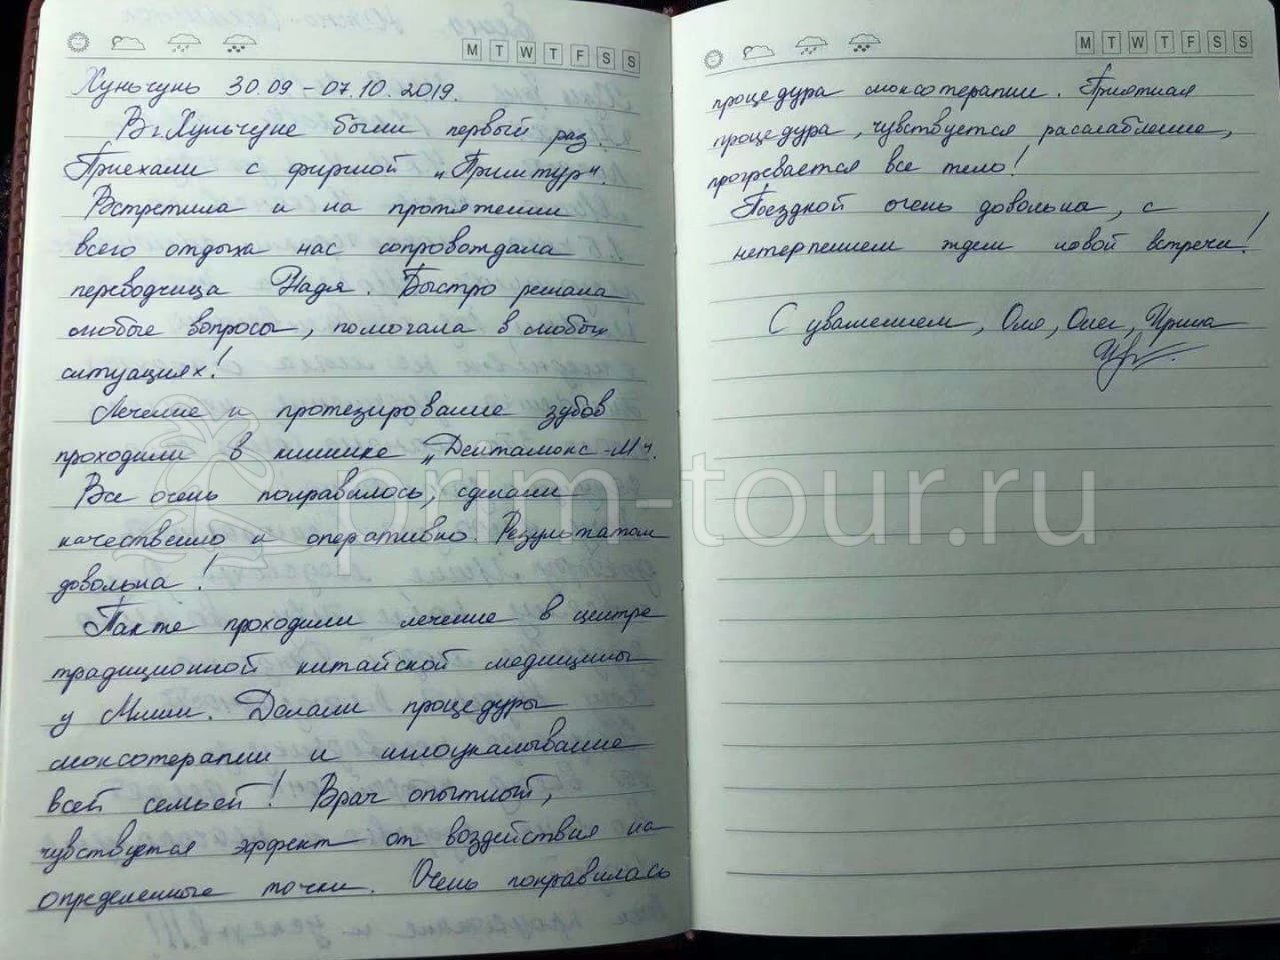 M T W T F S S
Хуньчунь 30.09 – 07.10.2019.
В г. Хуньчуне были первый раз.
Приехали с фирмой „Примтур“.
Встретила и на протяжении
всего отдыха нас сопровождала
переводчица Надя. Быстро решала
любые вопросы, помогала в любых
ситуациях!
Лечение и протезирование зубов
проходили в клинике „Дентамокс-М“.
Все очень понравилось, сделали
качественно и оперативно. Результатом
довольна!
Также проходили лечение в центре
традиционной китайской медицины
у Миши. Делали процедуры
моксотерапии и иглоукалывание
всей семьей! Врач опытный,
чувствуется эффект от воздействия на
определенные точки. Очень понравилась
M T W T F S S
процедура моксотерапии. Приятная
процедура, чувствуется расслабление,
прогревается все тело!
Поездкой очень довольна, с
нетерпением ждем новой встречи!
С уважением, Оля, Олег, Ирина
prim-tour.ru